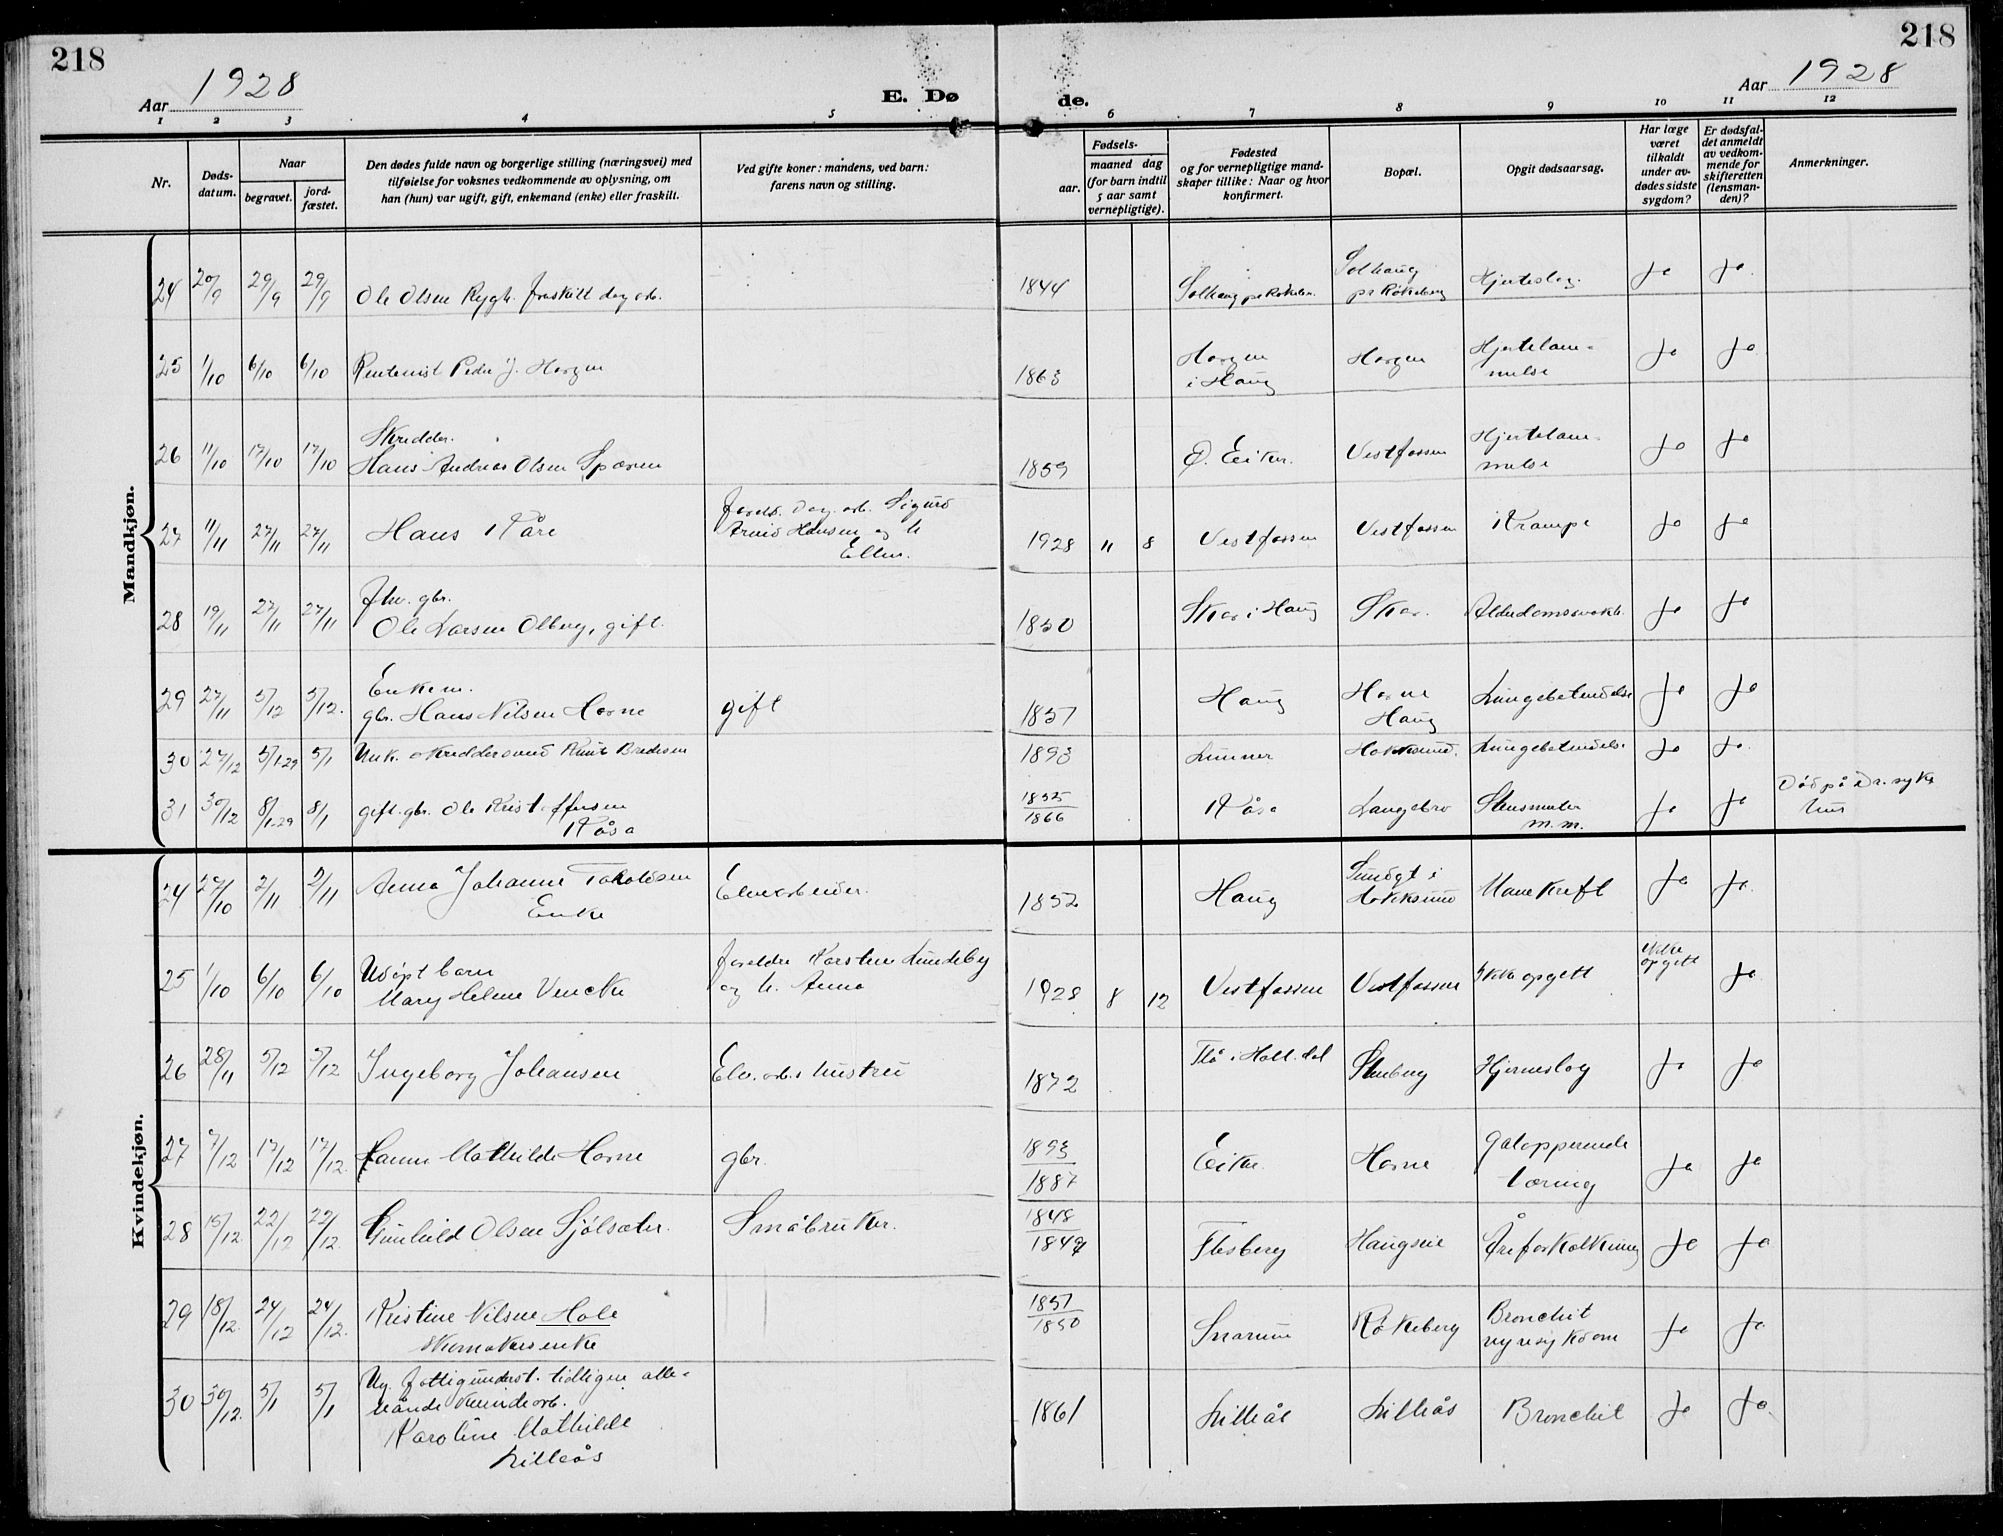 218
218
Aar 1928
E. Dø
de.
Aar 1928
1 2 3 4 5 6 7 8 9 10 11 12
Nr.
Døds-
datum.
Naar
begravet.
jord-
fæstet.
Den dødes fulde navn og borgerlige stilling (næringsvei) med
tilføielse for voksnes vedkommende av oplysning, om
han (hun) var ugift, gift, enkemand (enke) eller fraskilt.
Ved gifte koner: mandens, ved barn:
farens navn og stilling.
Fødsels-
aar.
maaned dag
(for barn indtil
5 aar samt
vernepligtige).
Fødested
og for vernepligtige mand-
skaper tillike: Naar og hvor
konfirmert.
Bopæl.
Opgit dødsaarsag.
Har læge
været
tilkaldt
under av-
dødes sidste
sygdom?
Er dødsfal-
det anmeldt
av vedkom-
mende for
skifteretten
(lensman-
den)?
Anmerkninger.
Mandkjøn.
24 20/9 29/9 29/9 Ole Olsen Rygh. fraskilt dag arb. 1844 Solhaug på Røkeber. Solhaug
på Røkeberg Hjerteslag. Ja Ja.
25 1/10 6/10 6/10 Rentenist Peder J. Horgen 1863 Horgen
i Haug Horgen Hjertelam-
melse Ja Ja
26 11/10 17/10 17/10 Skredder.
Hans Andreas Olsen Spæren 1859 Ø. Eiker. Vestfossen Hjertelam-
melse Ja Ja
27 11/11 27/11 27/11 Hans Kåre foreld. dag. arb. Sigurd
Arnid Hansen og h.
Ellen. 1928 11 8 Vestfossen Vestfossen Krampe Ja Ja
28 19/11 27/11 27/11 fhv. gbr.
Ole Larsen Olberg, gift. 1850 Skar i Haug Skar. Alderdomssvakh. Ja Ja
29 27/11 5/12 5/12. Enkem.
gbr. Hans Nilsen Horne gift 1857 Haug Horne
Haug Lungebetendelse Ja Ja
30 27/12 5/1.29 5/1 Unk. skreddersvend Knut Bredesen 1893 Lunner Hokksund. Lungebetendelse Ja Ja.
31 30/12 8/1.29 8/1 gift. gbr. Ole Kristoffersen
Kåsa 1855
1866 Kåsa Langebro Stensmerter
m.m. Ja Ja Død på Dr. syke
hus
Kvindekjøn.
24 27/10 2/11 2/11 Anna Johanne Taraldsen
Enke Elvearbeider. 1852 Haug Sundgt i
Hokksund Mavekreft Ja Ja.
25 1/10 6/10 6/10 Udøpt barn
Mary Helene Vencke foreldre Karsten Lundeby
og h. Anna 1928 8 12 Vestfossen Vestfossen Ikke opgitt ikke
opgitt Ja
26 28/11 5/12 5/12 Ingeborg Johansen Elv. arb.s hustru 1872 Flå i Hall.dal Stenberg Hjerneslag Ja Ja
27 7/12 17/12 17/12. Hanna Mathilde Horne gbr. 1893
1887 Eiker. Horne galopperende
tæring Ja Ja
28 15/12. 22/12 22/12. Gunhild Olsen Sjölsæter. Småbruker. 1848
1849 Flesberg Haugseie Åreforkalkning Ja Ja
29 18/12. 24/12 24/12. Kristine Nilsen Hole
skomakersenke 1857
1850 Snarum Røkeberg Bronchit
nyresykdom Ja Ja
30 30/12. 5/1 5/1 Ug. fattigunderst. tidligere alle-
hånde kvindearb.
Karoline Mathilde
Lilleås 1861 Lilleås Lilleås Bronchit Ja Ja.